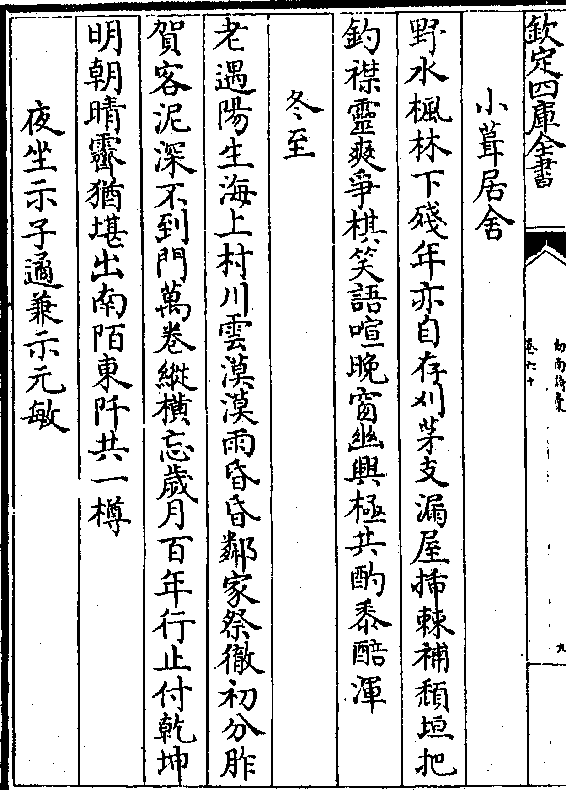 欽定四庫全書
劍南詩稾
卷六十
九
小葺居舍
野水楓林下殘年亦自存刈茅支漏屋揷棘補頹垣把
釣襟靈爽爭棋笑語喧晚窗幽興極共酌黍醅渾
冬至
老遇陽生海上村川雲漠漠雨昏昏鄰家祭徹初分胙
賀客泥深不到門萬卷縱横忘歲月百年行止付乾坤
明朝晴霽猶堪出南陌東阡共一樽
夜坐示子遹兼示元敏